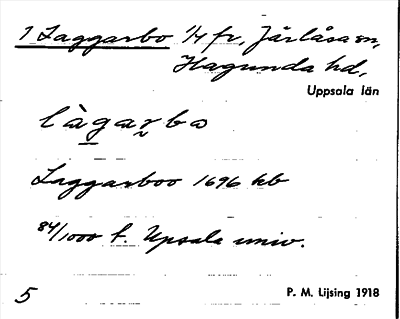 1 Laggarbo 1/4 fr, Järlåsa sn,
Hagunda hd,
Uppsala län
làgarbo
Laggarboo 1696 kb
84/1000 f. Upsala univ.
5 P. M. Lijsing 1918